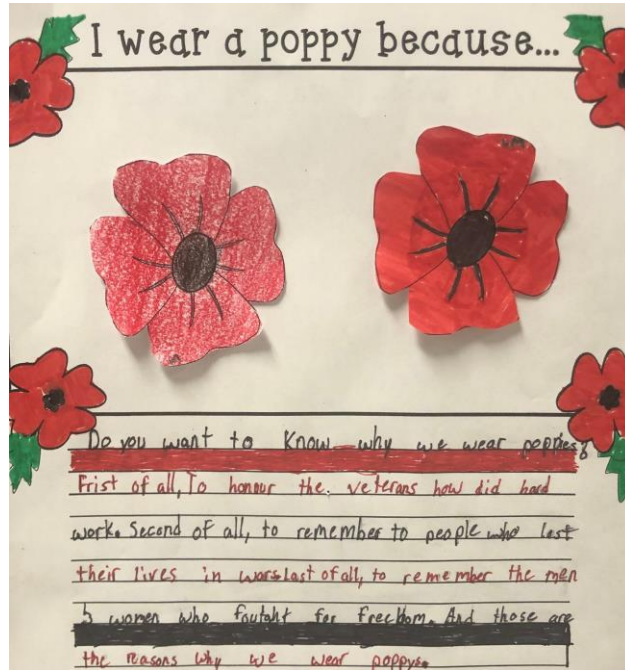 I wear a poppy because...
Do you want to Know why we wear poppies?
Frist of all, To honour the veterans how did hard
work. Second of all, to remember to people who lost
their lives in wars. last of all, to remember the men
& women who foutght for freedom. And those are
the reasons why we wear poppys.